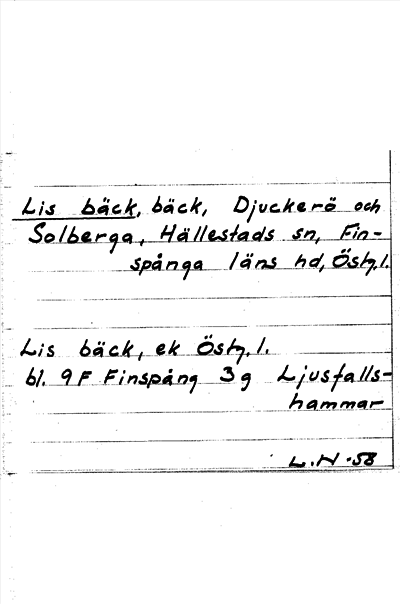 Lis bäck, bäck, Djuckerö och
Solberga, Hällestads sn, Fin-
spånga läns hd, Östg.l.
Lis bäck, ek Östg.l.
bl. 9F Finspång 3g Ljusfalls-
hammar
L.N-58